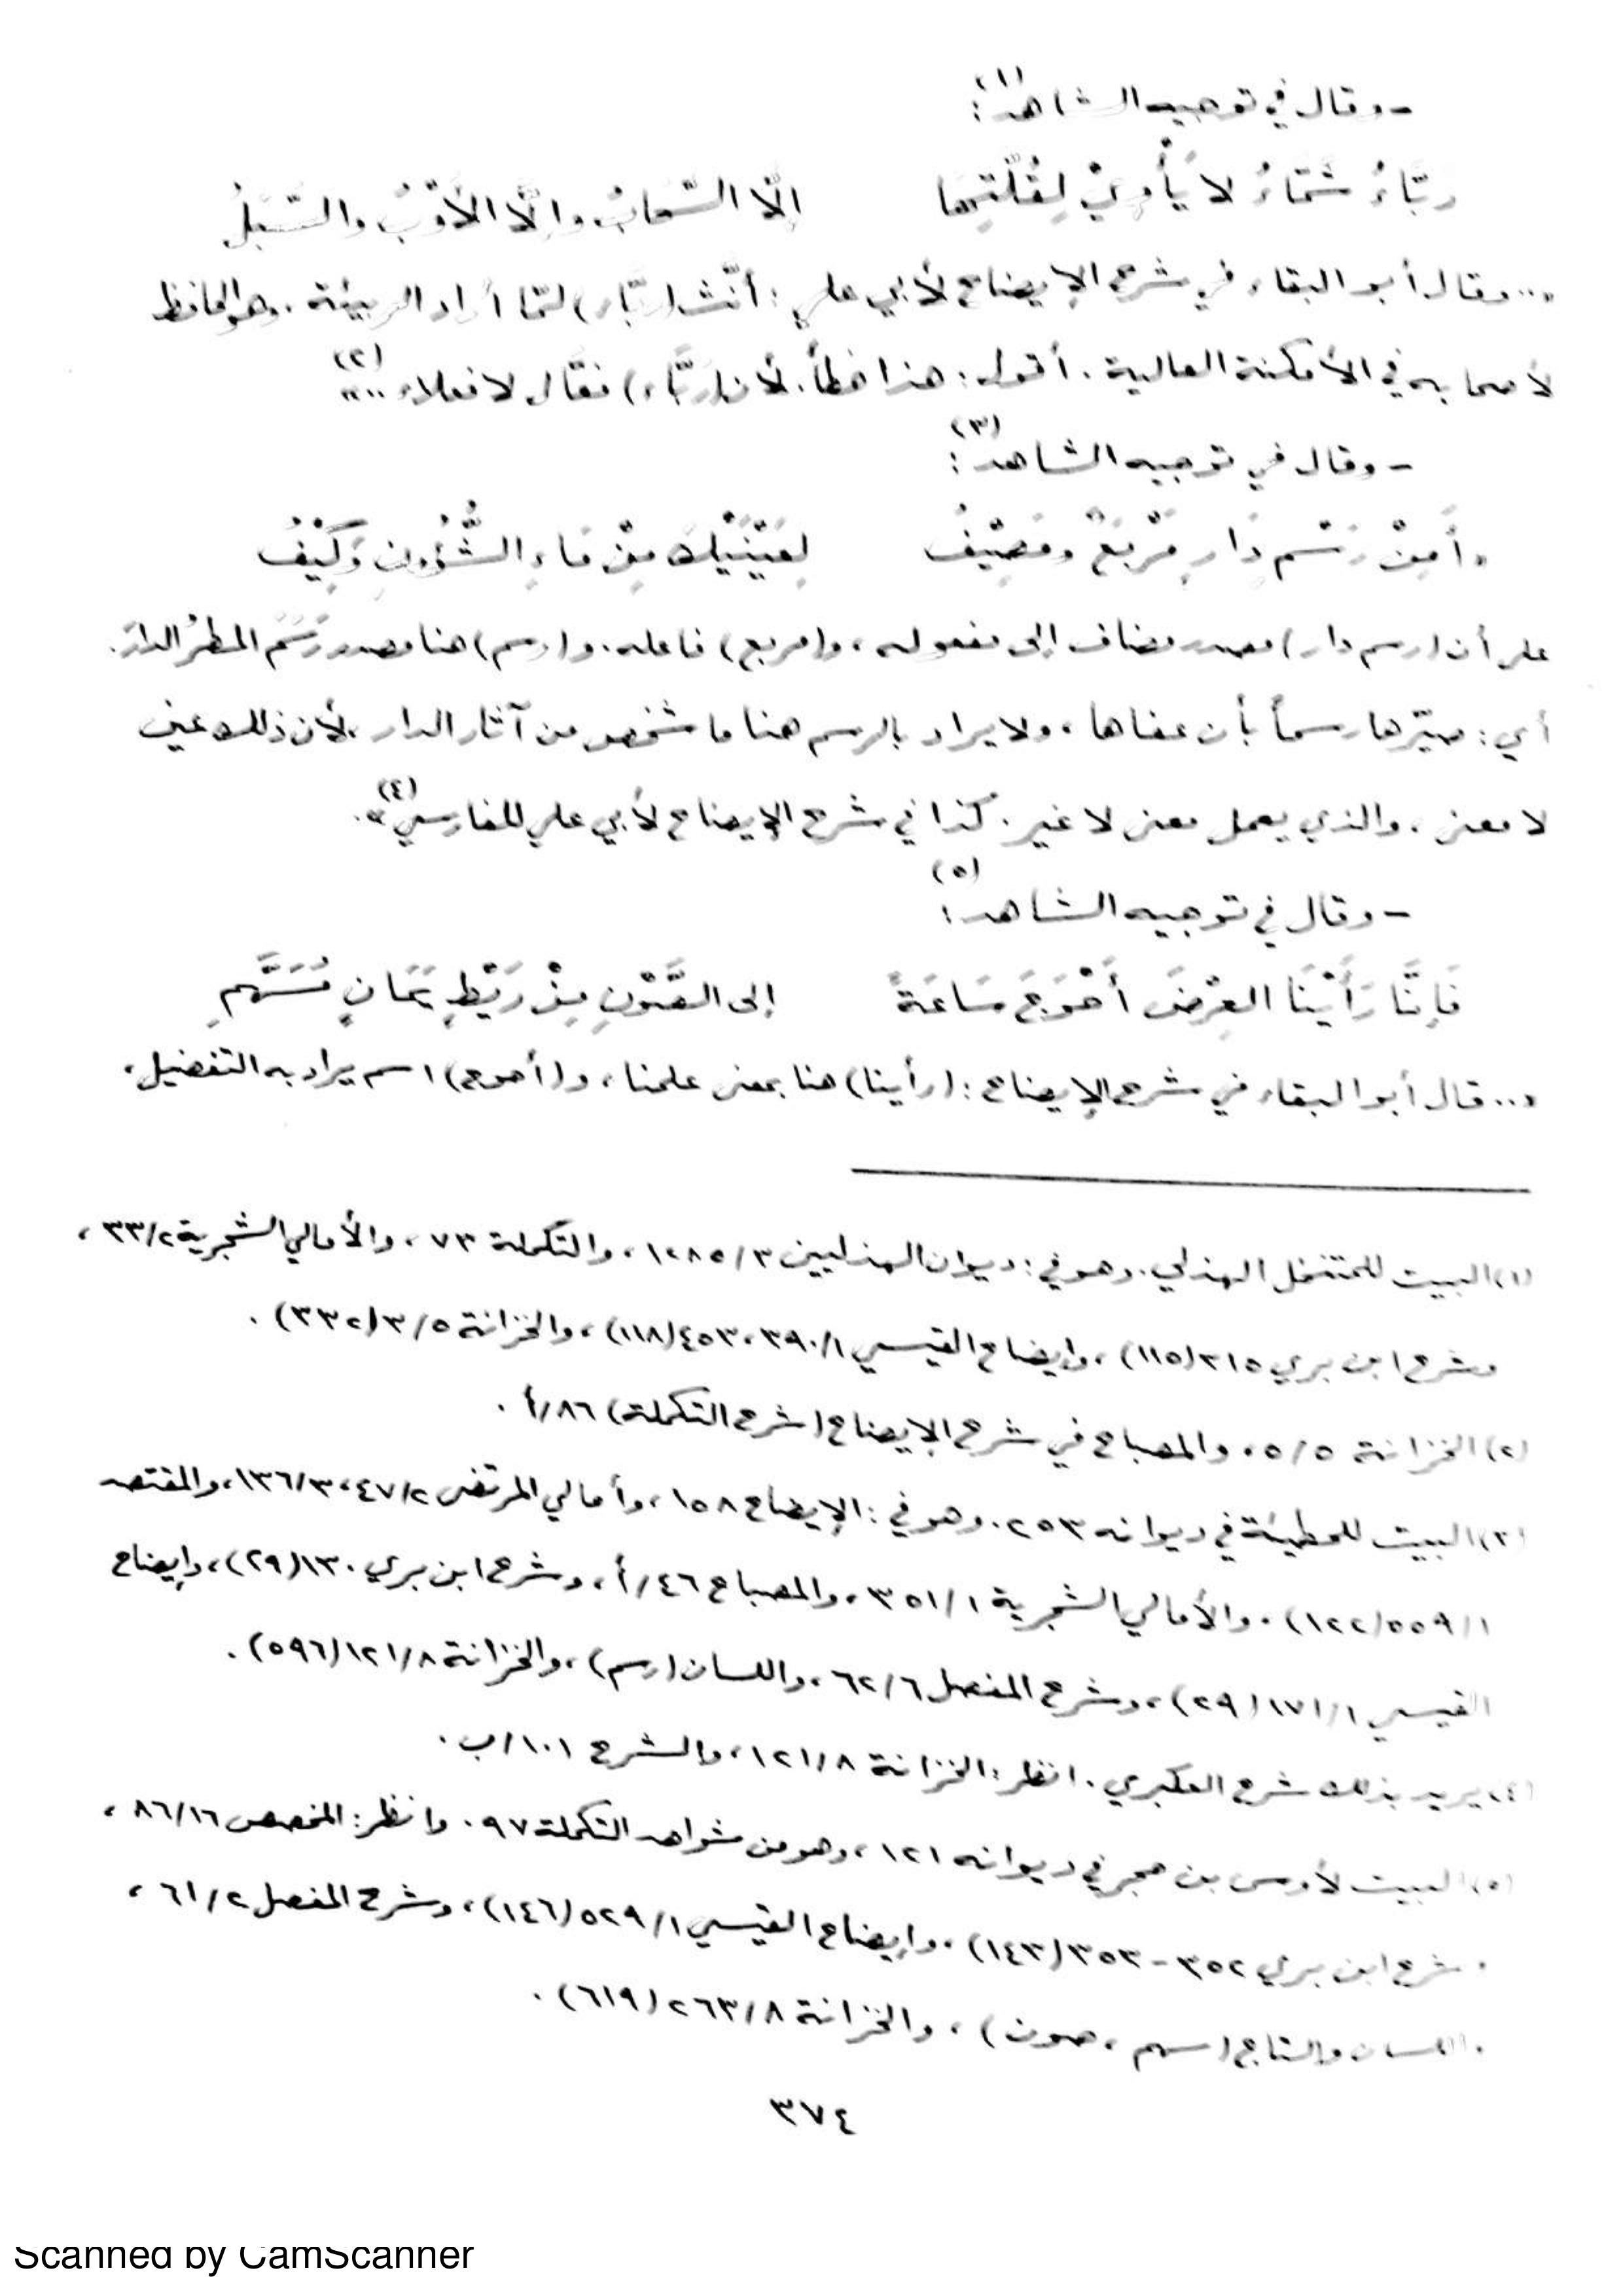 - وقال في توجيه الشاهد(١):
رَبَّاءُ شَمَّاءُ لا يَأْوِيْ لِقُلَّتِهَا إلَّا السَّحَابُ وإلَّا الأَوْبُ والسَّبَلُ
«... وقال أبو البقاء في شرح الإيضاح لأبي علي: أنَّث (ربَّاء) لمَّا أراد الربيئة. وهو الحافظ
لأصحابه في الأمكنة العالية. أقول: هذا خطأ. لأن (ربَّاء) فعَّال لا فعلاء...»(٢)
- وقال في توجيه الشاهد(٣):
«أَمِنْ رَسْمِ دَارٍ مَرْبَعٌ ومَصِيْفُ لِعَيْنَيْكَ مِنْ مَاءِ الشُّؤُونِ وَكِيْفُ
على أن (رسم دار) مصدر مضاف إلى مفعوله، و(مربع) فاعله. و(رسم) هنا مصدر رَسَمَ المطرُ الدارَ.
أي: صيّرها رسماً بأن عفاها، ولا يراد بالرسم هنا ما شخص من آثار الدار، لأن ذلك عين
لا معنى، والذي يعمل معنى لا غير. كذا في شرح الإيضاح لأبي علي للفارسي»(٤).
- وقال في توجيه الشاهد(٥):
فَإِنَّا رَأَيْنَا العِرْضَ أَحْوَجَ سَاعَةً إلى الصَّوْنِ مِنْ رَيْطٍ يَمَانٍ مُسَهَّمِ
«... قال أبو البقاء في شرح الإيضاح: (رأينا) هنا بمعنى علمنا، و(أحوج) اسم يراد به التفضيل،
(١) البيت للمتنخل الهذلي. وهو في: ديوان الهذليين ١٢٨٥/٣، والتكملة ٧٣، والأمالي الشجرية ٣٣/٢،
وشرح ابن بري ٣١٥ (١١٥)، وإيضاح القيسي ٣٩٠/١، ٤٥٣ (١١٨)، والخزانة ٣/٥ (٣٣٢).
(٢) الخزانة ٥/٥، والمصباح في شرح الإيضاح (شرح التكملة) ٨٦/أ.
(٣) البيت للحطيئة في ديوانه ٢٥٣. وهو في: الإيضاح ١٥٨، وأمالي المرتضى ٤٧/٢، ١٣٦/٣، والمقتصد
٥٥٩/١ (١٢٢). والأمالي الشجرية ٣٥١/١، والمصباح ٤٦/أ، وشرح ابن بري ١٣٠ (٢٩)، وإيضاح
القيسي ١٧١/١ (٢٩)، وشرح المفصل ٦٢/٦، واللسان (رسم)، والخزانة ١٢١/٨ (٥٩٦).
(٤) يريد بذلك شرح العكبري. انظر: الخزانة ١٢١/٨، والشرح ١٠١/ب.
(٥) البيت لأوس بن حجر في ديوانه ١٢١، وهو من شواهد التكملة ٩٧. وانظر: المخصص ٨٦/١٦،
وشرح ابن بري ٣٥٢-٣٥٣ (١٤٣)، وإيضاح القيسي ٥٢٩/١ (١٤٦)، وشرح المفصل ٦١/٢،
واللسان والتاج (سهم، صون)، والخزانة ٢٦٣/٨ (٦١٩).
٣٧٤
Scanned by CamScanner